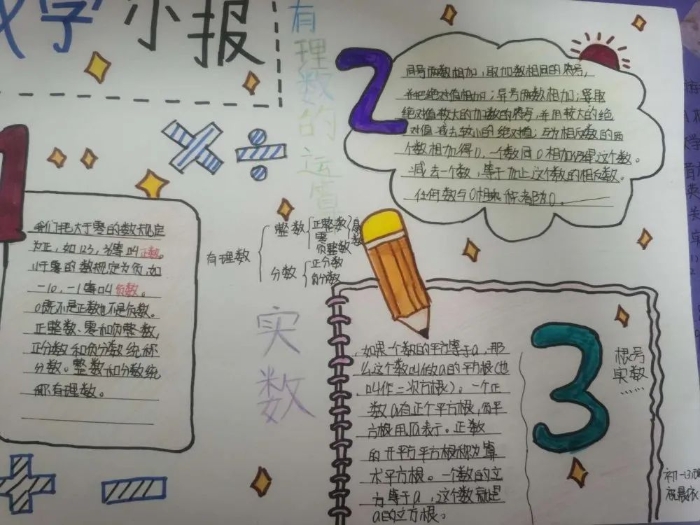 数学小报
有理数的运算
我们把大于零的数规定
为正,如
叫正数。
小于零的数规定为负,如
-10、-1等叫负数。
0既不是正数也不是负数。
正整数、零和负整数,
正分数和负分数统称
分数。整数和分数统
称有理数。
2
同号两数相加,取加数相同的符号,
并把绝对值相加;异号两数相加,要取
绝对值较大的加数的符号,并用较大的绝
对值减去较小的绝对值;互为相反数的两
个数相加得0,一个数同0相加仍得这个数。
减去一个数,等于加上这个数的相反数。
任何数与0相乘
都为0。
有理数
整数
正整数
零
负整数
分数
正分数
负分数
实数
如果一个数的平方等于a,那
么这个数叫做a的平方根(也
叫作二次方根)。一个正
数a有正个平方根,
平
方根用√a表示。正数
的
平方根称为算
术平方根。一个数的立
方等于a,这个数就是
a的立方根。
3
根号
实数
……
初一13班